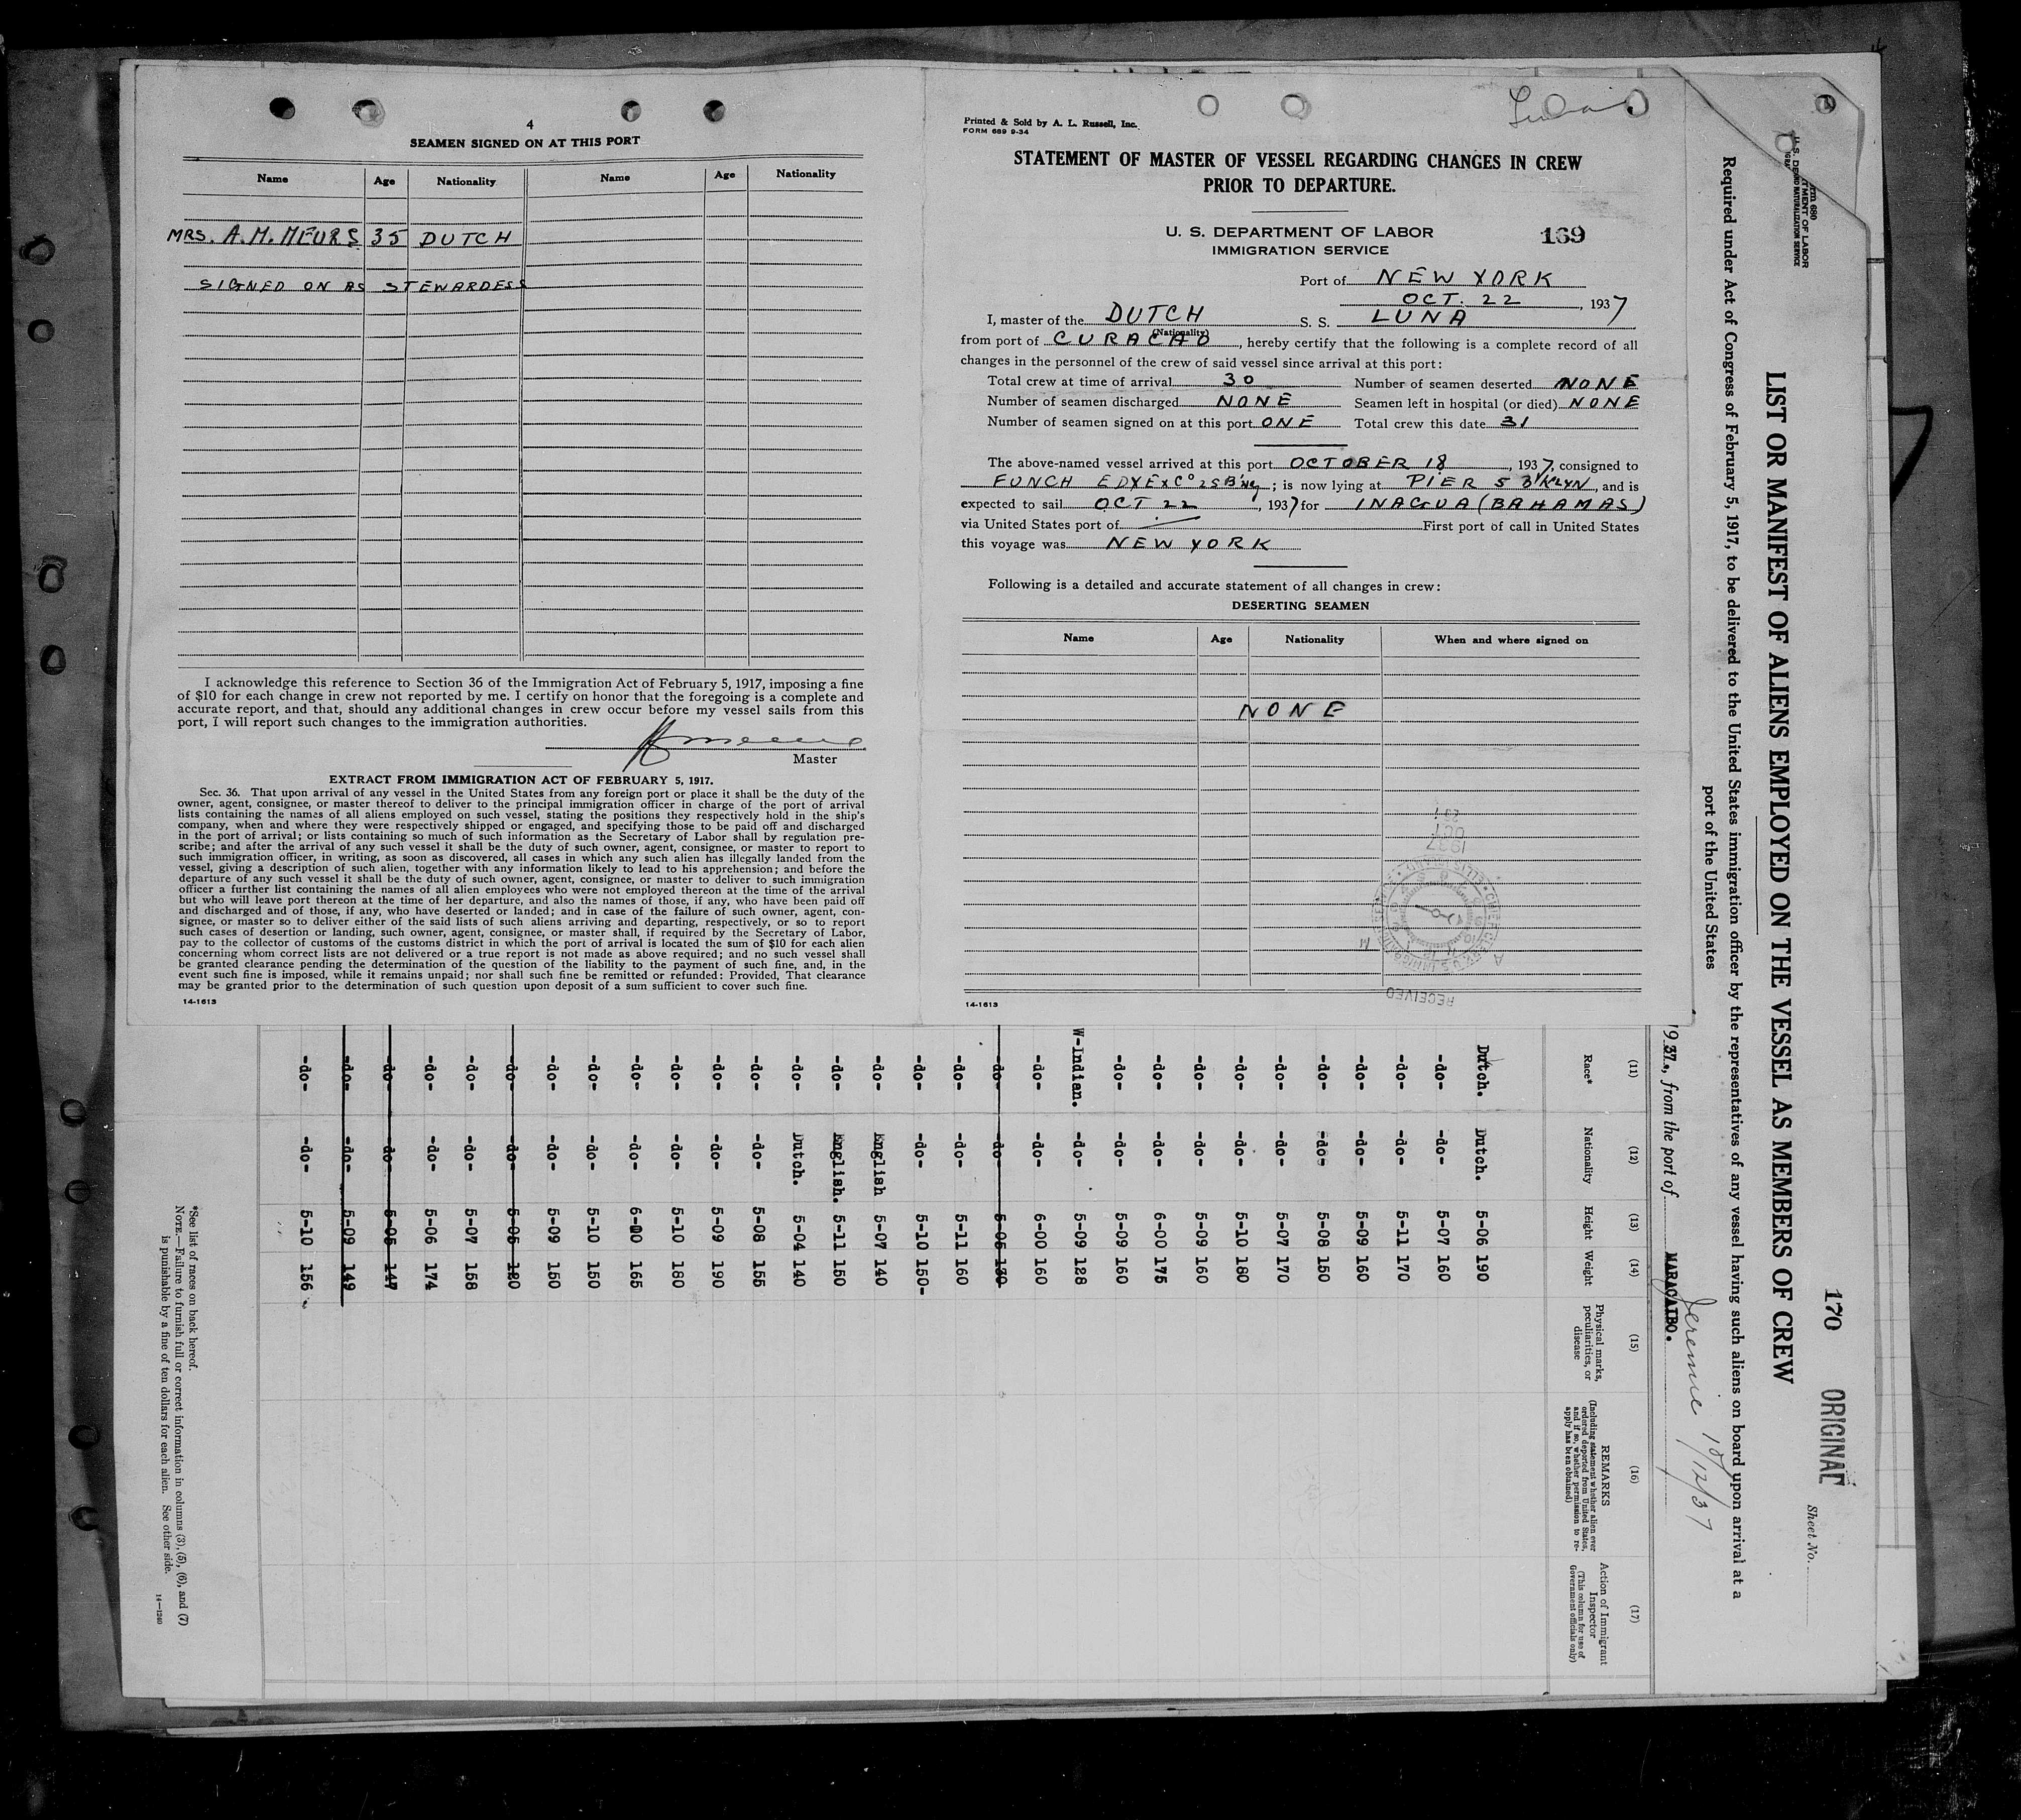 4
SEAMEN SIGNED ON AT THIS PORT
Name Age Nationality Name Age Nationality
MRS. A.M. MEURS 35 DUTCH
SIGNED ON AS STEWARDESS
I acknowledge this reference to Section 36 of the Immigration Act of February 5, 1917, imposing a fine
of $10 for each change in crew not reported by me. I certify on honor that the foregoing is a complete and
accurate report, and that, should any additional changes in crew occur before my vessel sails from this
port, I will report such changes to the immigration authorities.
Master
EXTRACT FROM IMMIGRATION ACT OF FEBRUARY 5, 1917.
Sec. 36. That upon arrival of any vessel in the United States from any foreign port or place it shall be the duty of the
owner, agent, consignee, or master thereof to deliver to the principal immigration officer in charge of the port of arrival
lists containing the names of all aliens employed on such vessel, stating the positions they respectively hold in the ship's
company, when and where they were respectively shipped or engaged, and specifying those to be paid off and discharged
in the port of arrival; or lists containing so much of such information as the Secretary of Labor shall by regulation pre-
scribe; and after the arrival of any such vessel it shall be the duty of such owner, agent, consignee, or master to report to
such immigration officer, in writing, as soon as discovered, all cases in which any such alien has illegally landed from the
vessel, giving a description of such alien, together with any information likely to lead to his apprehension; and before the
departure of any such vessel it shall be the duty of such owner, agent, consignee, or master to deliver to such immigration
officer a further list containing the names of all alien employees who were not employed thereon at the time of the arrival
but who will leave port thereon at the time of her departure, and also the names of those, if any, who have been paid off
and discharged and of those, if any, who have deserted or landed; and in case of the failure of such owner, agent, con-
signee, or master so to deliver either of the said lists of such aliens arriving and departing, respectively, or so to report
such cases of desertion or landing, such owner, agent, consignee, or master shall, if required by the Secretary of Labor,
pay to the collector of customs of the customs district in which the port of arrival is located the sum of $10 for each alien
concerning whom correct lists are not delivered or a true report is not made as above required; and no such vessel shall
be granted clearance pending the determination of the question of the liability to the payment of such fine, and, in the
event such fine is imposed, while it remains unpaid; nor shall such fine be remitted or refunded: Provided, That clearance
may be granted prior to the determination of such question upon deposit of a sum sufficient to cover such fine.
14-1613
Printed & Sold by A. L. Russell, Inc.
FORM 689 9-34
STATEMENT OF MASTER OF VESSEL REGARDING CHANGES IN CREW
PRIOR TO DEPARTURE.
U. S. DEPARTMENT OF LABOR
IMMIGRATION SERVICE
169
Port of NEW YORK
OCT. 22, 1937
I, master of the DUTCH S. S. LUNA
(Nationality)
from port of CURACAO, hereby certify that the following is a complete record of all
changes in the personnel of the crew of said vessel since arrival at this port:
Total crew at time of arrival 30 Number of seamen deserted NONE
Number of seamen discharged NONE Seamen left in hospital (or died) NONE
Number of seamen signed on at this port ONE Total crew this date 31
The above-named vessel arrived at this port OCTOBER 18, 1937, consigned to
FUNCH EDYE & Co 25 B'way; is now lying at PIER 5 B'KLYN, and is
expected to sail OCT 22, 1937 for INAGUA (BAHAMAS)
via United States port of First port of call in United States
this voyage was NEW YORK
Following is a detailed and accurate statement of all changes in crew:
DESERTING SEAMEN
Name Age Nationality When and where signed on
NONE
RECEIVED
OCT
1937
14-1613
170
ORIGINAL
Sheet No.
LIST OR MANIFEST OF ALIENS EMPLOYED ON THE VESSEL AS MEMBERS OF CREW
Required under Act of Congress of February 5, 1917, to be delivered to the United States immigration officer by the representatives of any vessel having such aliens on board upon arrival at a
port of the United States
1937., from the port of MARACAIBO. Jeremie 10/12/37
(11) (12) (13) (14) (15) (16) (17)
Race* Nationality Height Weight Physical marks, peculiarities, or disease REMARKS (Including statement whether alien ever ordered deported from United States, and if so, whether permission to re-apply has been obtained) Action of Immigrant Inspector (This column for use of Government officials only)
Dutch. Dutch. 5-06 190
-do- -do- 5-07 160
-do- -do- 5-11 170
-do- -do- 5-09 160
-do- -do- 5-08 150
-do- -do- 5-07 170
-do- -do- 5-10 180
-do- -do- 5-09 160
-do- -do- 6-00 175
-do- -do- 5-09 160
W-Indian. -do- 5-09 128
-do- -do- 6-00 160
-do- -do- 5-05 130
-do- -do- 5-11 160
-do- -do- 5-10 150-
-do- English 5-07 140
-do- English. 5-11 150
-do- Dutch. 5-04 140
-do- -do- 5-08 155
-do- -do- 5-09 190
-do- -do- 5-10 180
-do- -do- 6-00 165
-do- -do- 5-10 150
-do- -do- 5-09 150
-do- -do- 5-05 120
-do- -do- 5-07 158
-do- -do- 5-06 174
-do- -do- 5-05 147
-do- -do- 5-09 149
-do- -do- 5-10 156
*See list of races on back hereof.
NOTE.—Failure to furnish full or correct information in columns (3), (5), (6), and (7)
is punishable by a fine of ten dollars for each alien. See other side.
14-1240